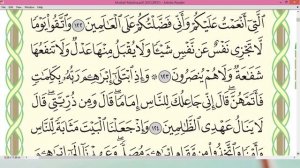 ٱلَّتِىٓ أَنْعَمْتُ عَلَيْكُمْ وَأَنِّى فَضَّلْتُكُمْ عَلَى ٱلْعَٰلَمِينَ ١٢٢ وَٱتَّقُوا۟ يَوْمًا
لَّا تَجْزِى نَفْسٌ عَن نَّفْسٍ شَيْـًٔا وَلَا يُقْبَلُ مِنْهَا عَدْلٌ وَلَا تَنفَعُهَا
شَفَٰعَةٌ وَلَا هُمْ يُنصَرُونَ ١٢٣ ۞ وَإِذِ ٱبْتَلَىٰٓ إِبْرَٰهِۦمَ رَبُّهُۥ بِكَلِمَٰتٍ
فَأَتَمَّهُنَّ ۖ قَالَ إِنِّى جَاعِلُكَ لِلنَّاسِ إِمَامًا ۖ قَالَ وَمِن ذُرِّيَّتِى ۖ قَالَ
لَا يَنَالُ عَهْدِى ٱلظَّٰلِمِينَ ١٢٤ وَإِذْ جَعَلْنَا ٱلْبَيْتَ مَثَابَةً لِّلنَّاسِ